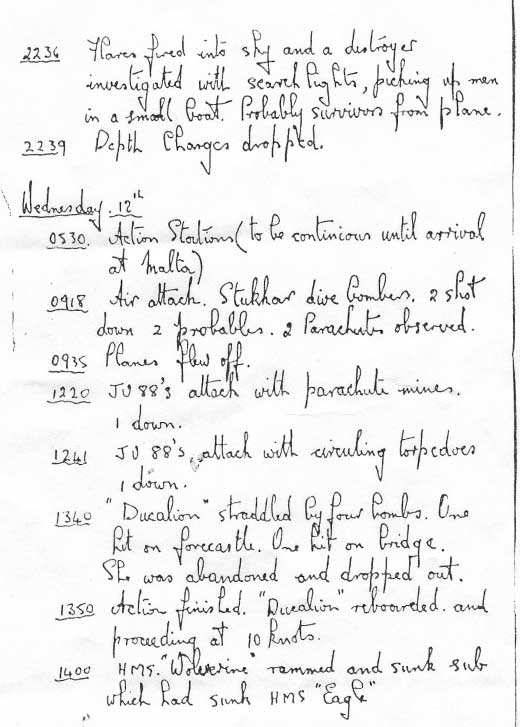 2236 Flares fired into sky and a destroyer
investigated with search lights, picking up men
in a small boat. Probably survivors from plane.
2239 Depth Charges dropped.
Wednesday. 12th
0530. Action Stations (to be continious until arrival
at Malta)
0918 Air attack. Stukhas dive bombers. 2 shot
down 2 probables. 2 Parachutes observed.
0935 Planes flew off.
1220 JU 88's attack with parachute mines.
1 down.
1241 JU 88's, attack with circuling torpedoes
1 down.
1340 "Ducalion" straddled by four bombs. One
hit on forecastle. One hit on bridge.
She was abandoned and dropped out.
1350 Action finished. "Ducalion" reboarded. and
proceeding at 10 knots.
1400 HMS. "Wolverine" rammed and sunk sub
which had sunk HMS "Eagle"